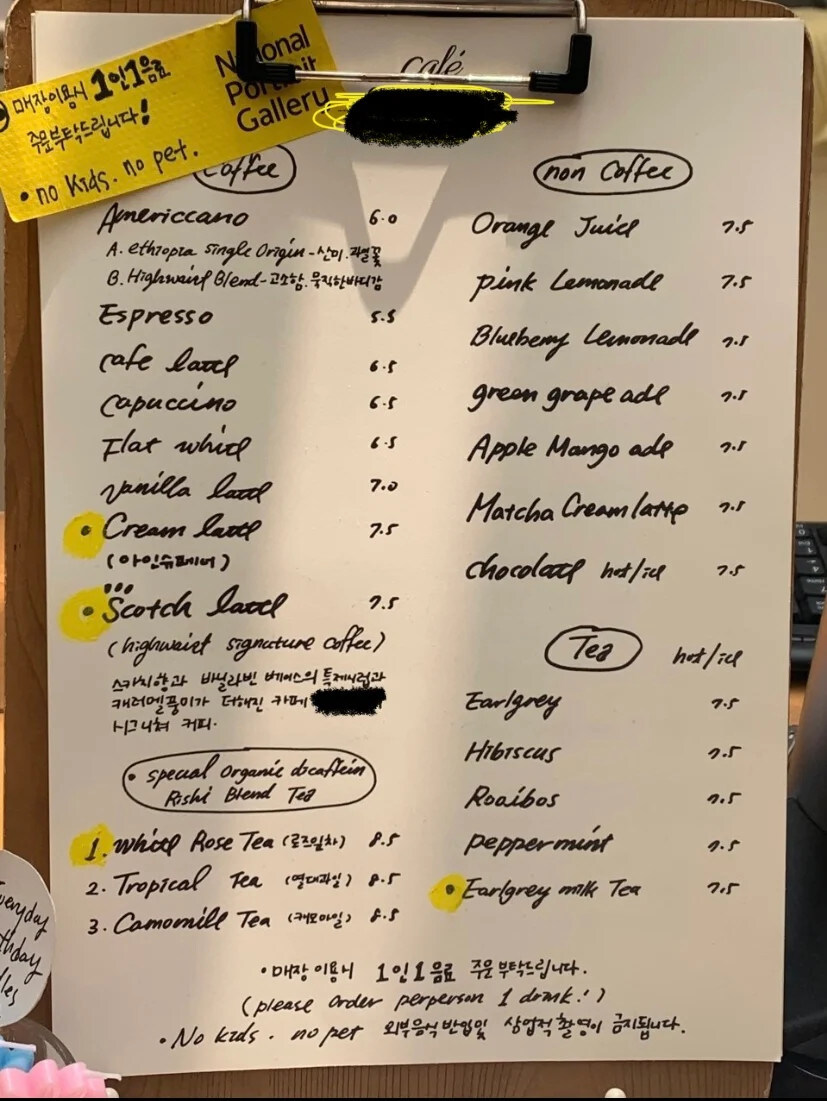 café
National
Portrait
Gallery
매장이용시 1인1음료
주문부탁드립니다!
• no kids. no pet.
Coffee
Americcano 6.0
A. ethiopia single Origin - 산미.과일꽃
B. Highwaist Blend - 고소함. 묵직한바디감
Espresso 5.5
cafe latte 6.5
capuccino 6.5
Flat white 6.5
vanilla latte 7.0
• Cream latte 7.5
(아인슈페너)
• Scotch latte 7.5
(highwaist signature coffee)
스카치향과 바닐라빈 베이스의 특제시럽과
캐러멜풍미가 더해진 카페
시그니쳐 커피.
• special Organic dicaffein
Rishi Blend Tea
1. white Rose Tea (로즈잎차) 8.5
2. Tropical Tea (열대과일) 8.5
3. Camomill Tea (캐모마일) 8.5
non Coffee
Orange Juice 7.5
pink Lemonade 7.5
Blueberry Lemonade 7.5
green grape ade 7.5
Apple Mango ade 7.5
Matcha Cream latte 7.5
chocolate hot/ice 7.5
Tea hot/ice
Earlgrey 7.5
Hibiscus 7.5
Roaibos 7.5
peppermint 7.5
• Earlgrey milk Tea 7.5
• 매장이용시 1인1음료 주문부탁드립니다.
(please order perperson 1 drink!)
• No kids. no pet 외부음식반입및 상업적촬영이 금지됩니다.